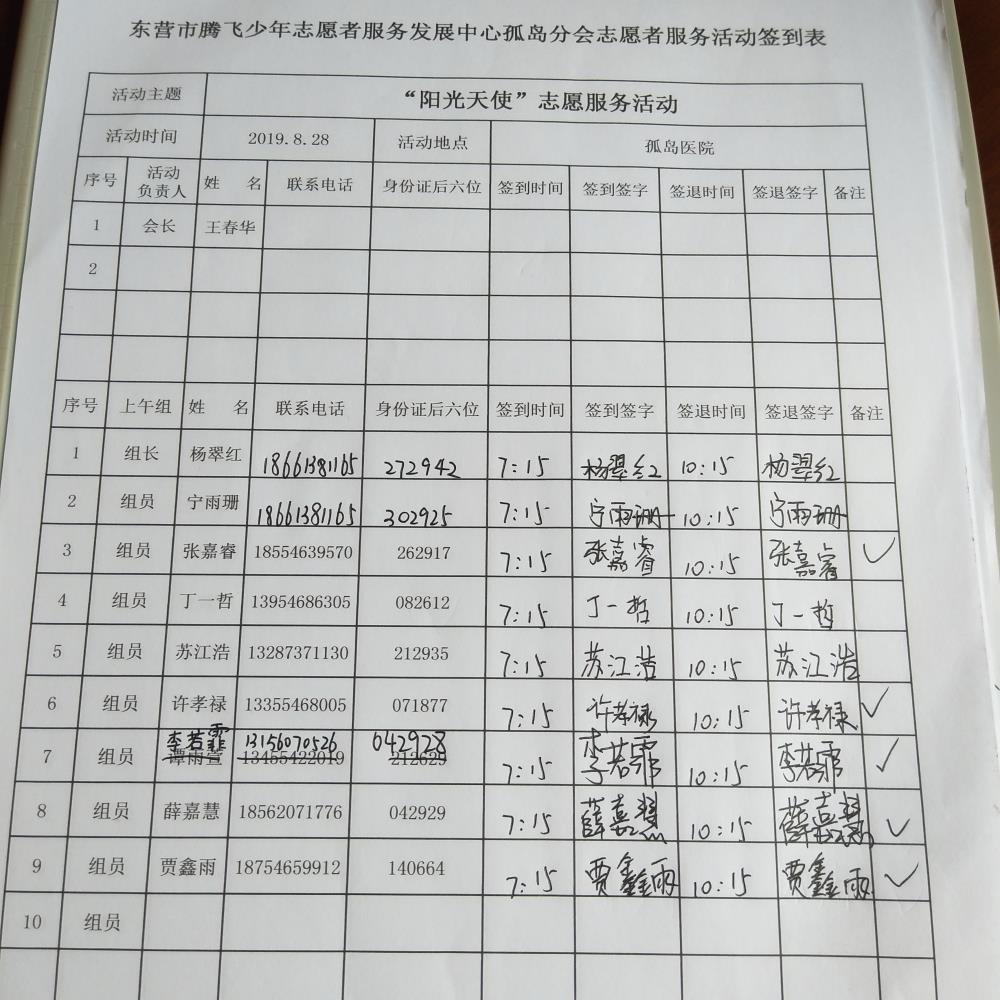 东营市腾飞少年志愿者服务发展中心孤岛分会志愿者服务活动签到表
活动主题 “阳光天使”志愿服务活动
活动时间 2019.8.28 活动地点 孤岛医院
序号 活动负责人 姓 名 联系电话 身份证后六位 签到时间 签到签字 签退时间 签退签字 备注
1 会长 王春华
2
序号 上午组 姓 名 联系电话 身份证后六位 签到时间 签到签字 签退时间 签退签字 备注
1 组长 杨翠红 18661381165 272942 7:15 杨翠红 10:15 杨翠红
2 组员 宁雨珊 18661381165 302925 7:15 宁雨珊 10:15 宁雨珊
3 组员 张嘉睿 18554639570 262917 7:15 张嘉睿 10:15 张嘉睿 ✓
4 组员 丁一哲 13954686305 082612 7:15 丁一哲 10:15 丁一哲
5 组员 苏江浩 13287371130 212935 7:15 苏江浩 10:15 苏江浩
6 组员 许孝禄 13355468005 071877 7:15 许孝禄 10:15 许孝禄 ✓
李若霏 13156070526 042928
7 组员 谭雨萱 13455422019 212629 7:15 李若霏 10:15 李若霏 ✓
8 组员 薛嘉慧 18562071776 042929 7:15 薛嘉慧 10:15 薛嘉慧 ✓
9 组员 贾鑫雨 18754659912 140664 7:15 贾鑫雨 10:15 贾鑫雨 ✓
10 组员